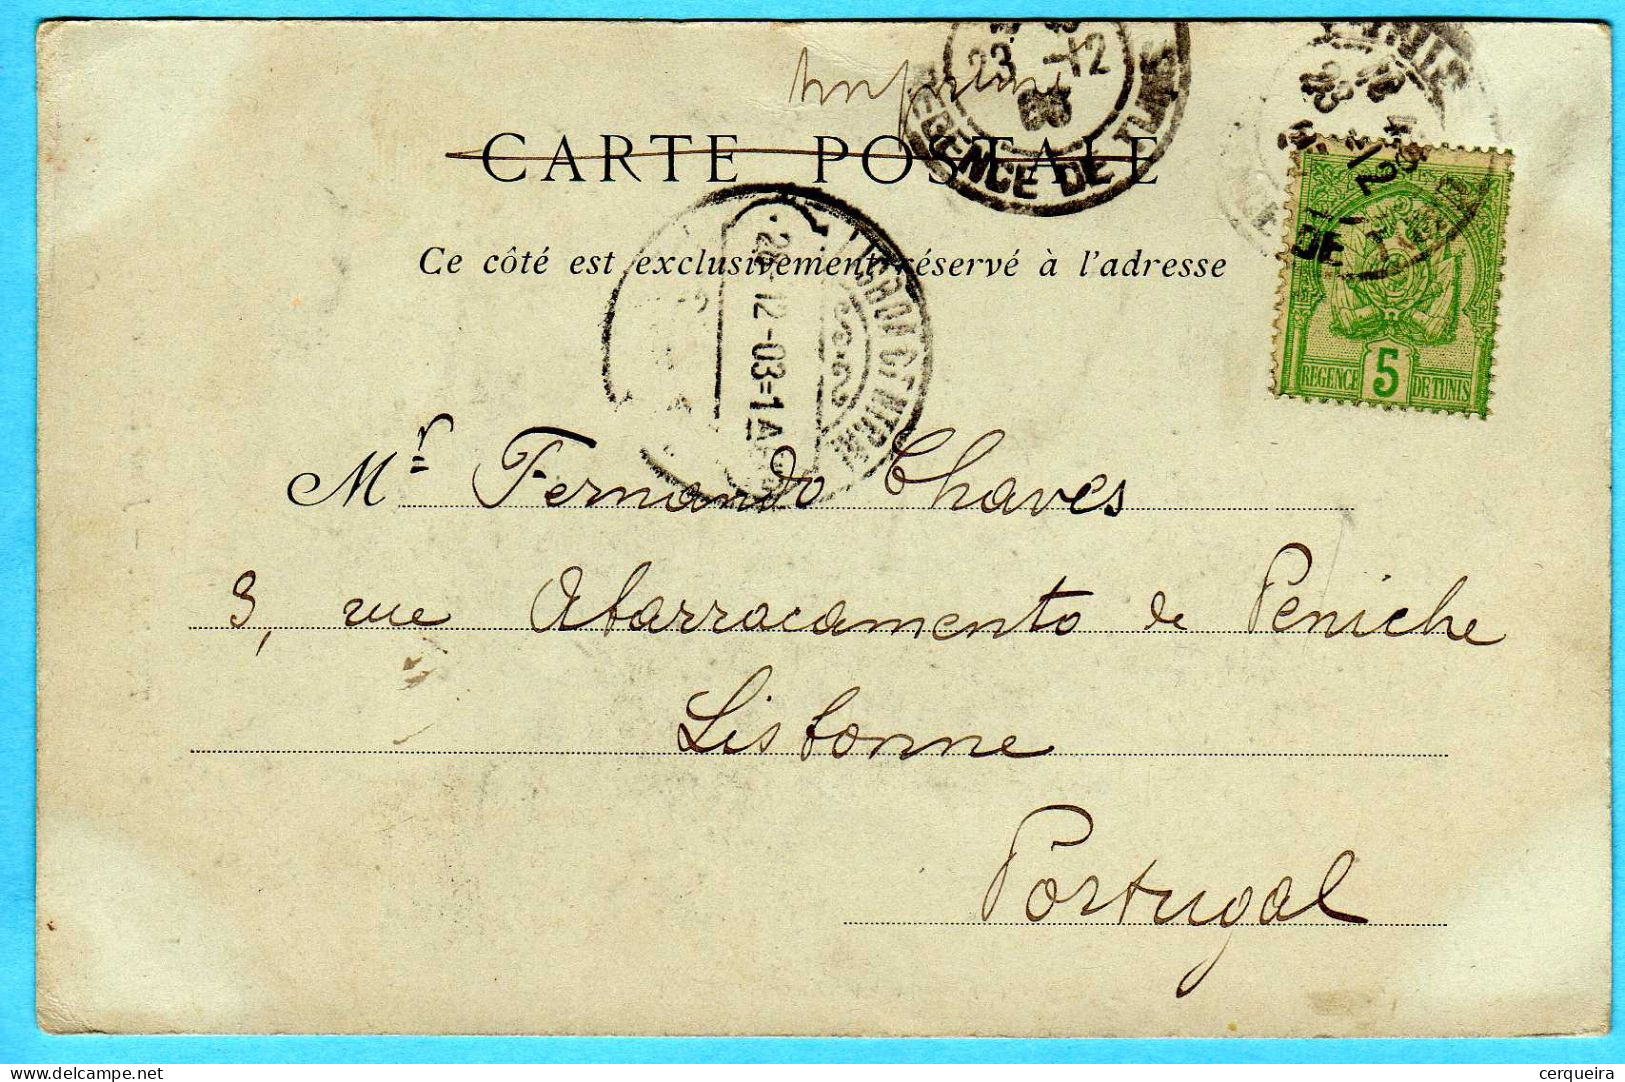 Imprimé
CARTE POSTALE
23 -12
03
REGENCE DE TUNIS
Ce côté est exclusivement réservé à l'adresse
LISBOA CENTRAL
12-03=1A
REGENCE 5 DE TUNIS
Mr Fernando Chaves
3, rue Abarracamento de Peniche
Lisbonne
Portugal
delcampe.net
cerqueira